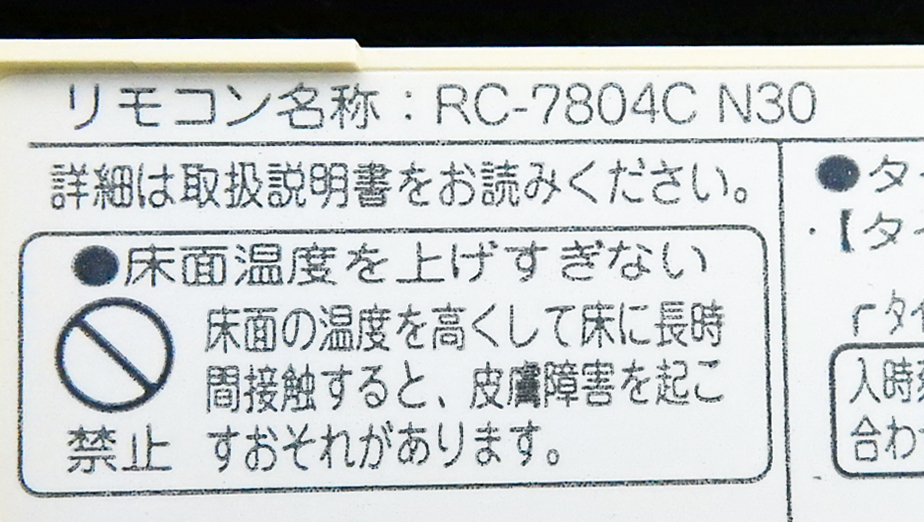 リモコン名称：RC-7804C N30
詳細は取扱説明書をお読みください。
●床面温度を上げすぎない
床面の温度を高くして床に長時
間接触すると、皮膚障害を起こ
禁止 すおそれがあります。
●タ
・【タ
「タイ
入時
合わ